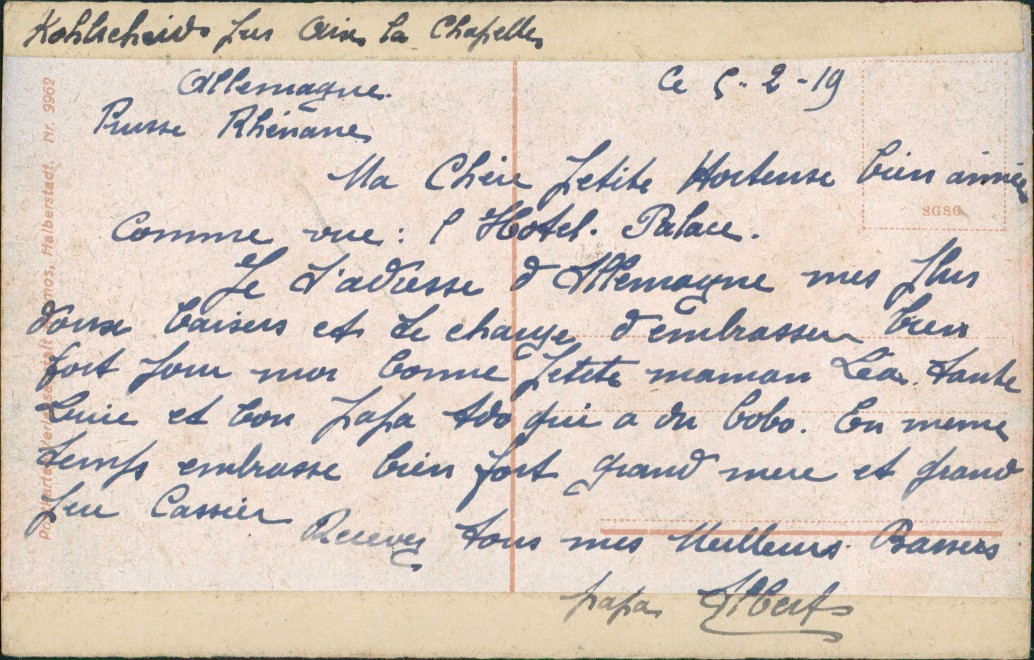 Kohlscheid pres Aix la Chapelle
Allemagne.
Ce 5-2-19
Prusse Rhénane
Ma Chère petite Hortense bien aimée
Comme vue: l'Hotel. Palace.
Je t'adresse d'Allemagne mes plus
doux baisers et te charge d'embrasser bien
fort pour moi bonne petite maman Léa. tante
et bon papa qui a du bobo. En meme
temps embrasse bien fort grand mere et grand
pere Cassier
Recevez tous mes Meilleurs Baisers
papa Albert
Nr. 9962
Halberstadt.
8680